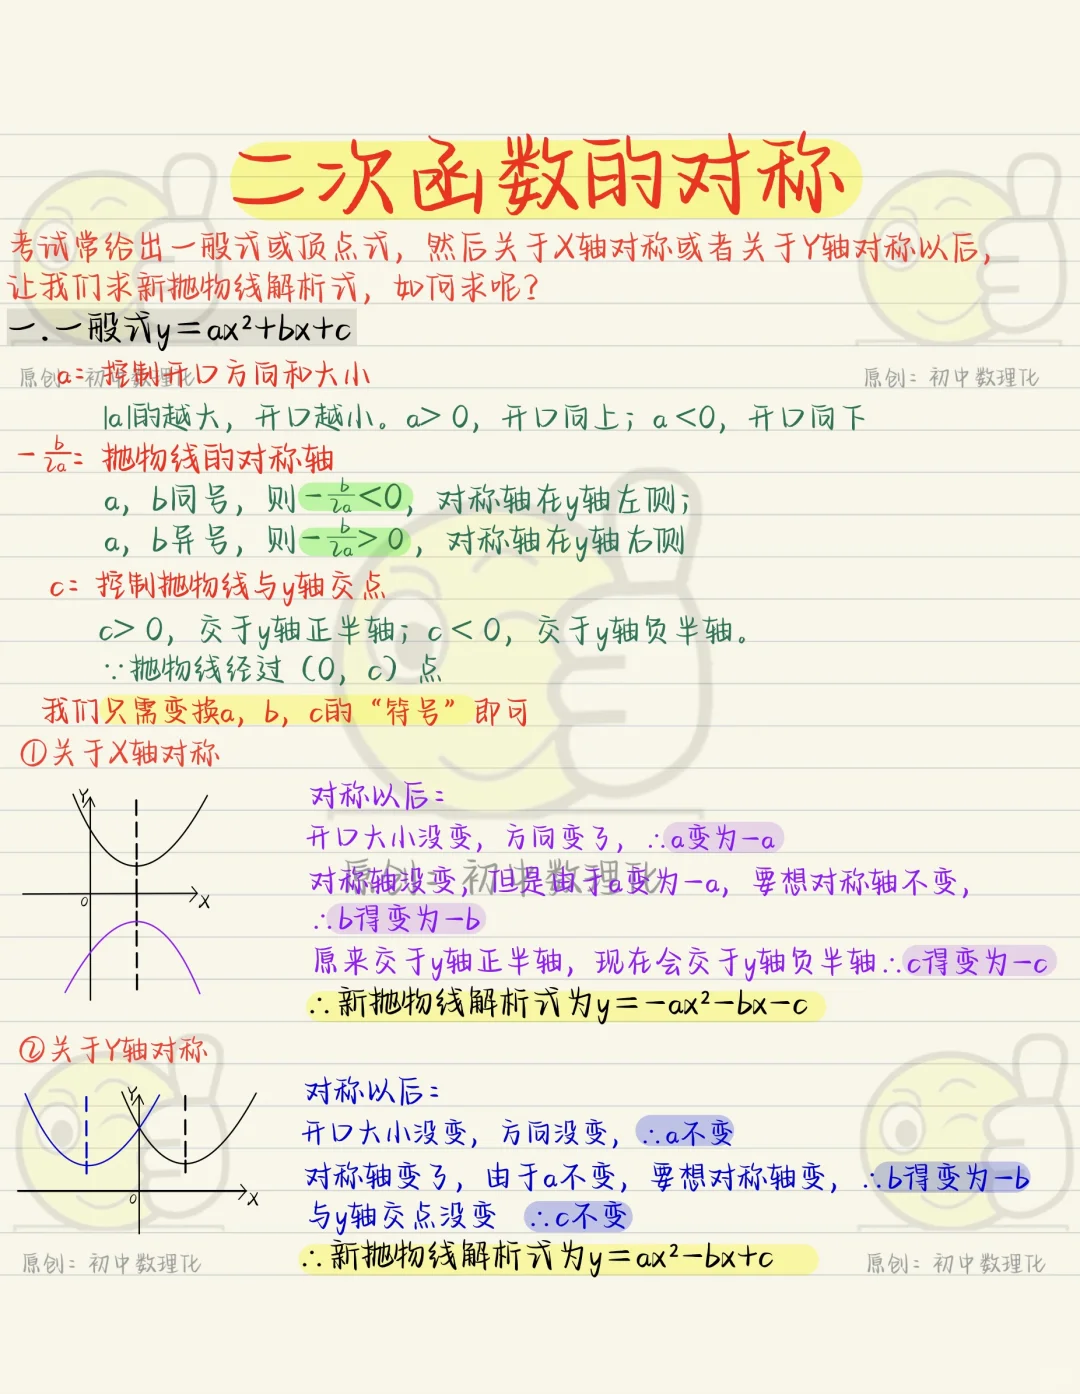 二次函数的对称
考试常给出一般式或顶点式，然后关于X轴对称或者关于Y轴对称以后，
让我们求新抛物线解析式，如何求呢？
一.一般式y=ax²+bx+c
a：控制开口方向和大小
原创：初中数理化
原创：初中数理化
|a|的越大，开口越小。a>0，开口向上；a<0，开口向下
-b/2a：抛物线的对称轴
a，b同号，则-b/2a<0，对称轴在y轴左侧；
a，b异号，则-b/2a>0，对称轴在y轴右侧
c：控制抛物线与y轴交点
c>0，交于y轴正半轴；c<0，交于y轴负半轴。
∵抛物线经过（0，c）点
我们只需变换a，b，c的“符号”即可
①关于X轴对称
Y
X
0
对称以后：
开口大小没变，方向变了，∴a变为-a
原创：初中数理化
对称轴没变，但是由于a变为-a，要想对称轴不变，
∴b得变为-b
原来交于y轴正半轴，现在会交于y轴负半轴∴c得变为-c
∴新抛物线解析式为y=-ax²-bx-c
②关于Y轴对称
Y
X
0
对称以后：
开口大小没变，方向没变，∴a不变
对称轴变了，由于a不变，要想对称轴变，∴b得变为-b
与y轴交点没变 ∴c不变
∴新抛物线解析式为y=ax²-bx+c
原创：初中数理化
原创：初中数理化